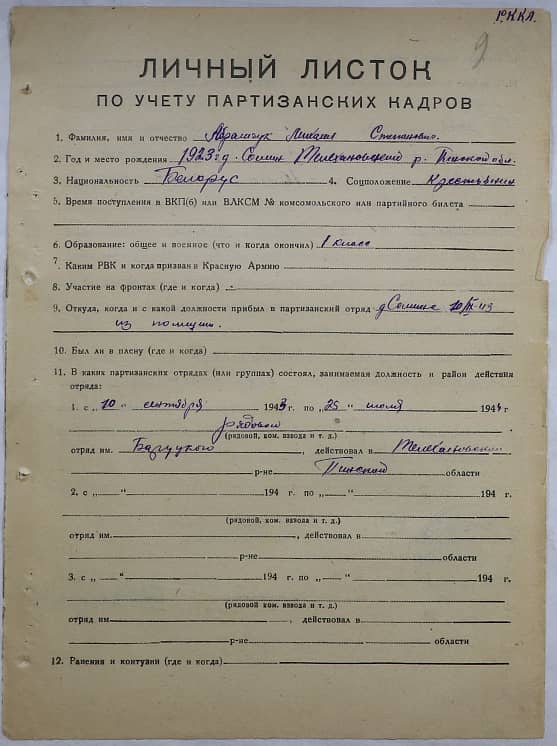 РККА.
9
ЛИЧНЫЙ ЛИСТОК
ПО УЧЕТУ ПАРТИЗАНСКИХ КАДРОВ
1. Фамилия, имя и отчество Абрамчук Михаил Степанович
2. Год и место рождения 1923 г д. Сомин Телехановский р. Пинской обл.
3. Национальность Белорус 4. Соцположение Крестьянин
5. Время поступления в ВКП(б) или ВЛКСМ № комсомольского или партийного билета
6. Образование: общее и военное (что и когда окончил) 1 класс
7. Каким РВК и когда призван в Красную Армию
8. Участие на фронтах (где и когда)
9. Откуда, когда и с какой должности прибыл в партизанский отряд д Сомин 10/IX-43
из
10. Был ли в плену (где и когда)
11. В каких партизанских отрядах (или группах) состоял, занимаемая должность и район действия
отряда:
1. с „10„ сентября 1943 г. по „25„ июля 1944 г
рядовой
(рядовой, ком. взвода и т. д.)
отряд им. , действовал в Телехановском
р-не Пинской области
2. с „ — “ 194 г. по „ — “ 194 г.
(рядовой, ком. взвода и т. д.)
отряд им. , действовал в
р-не области
3. с „ — “ 194 г. по „ — “ 194 г.
(рядовой, ком. взвода и т. д.)
отряд им , действовал в
р-не области
12. Ранения и контузии (где и когда)